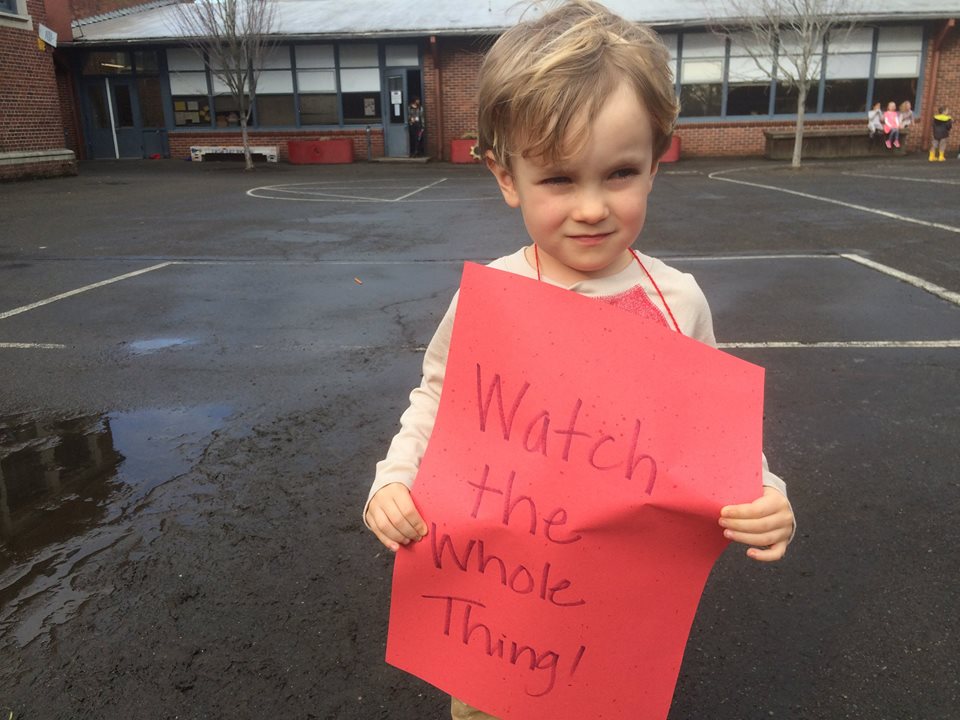 Watch
the
Whole
Thing!